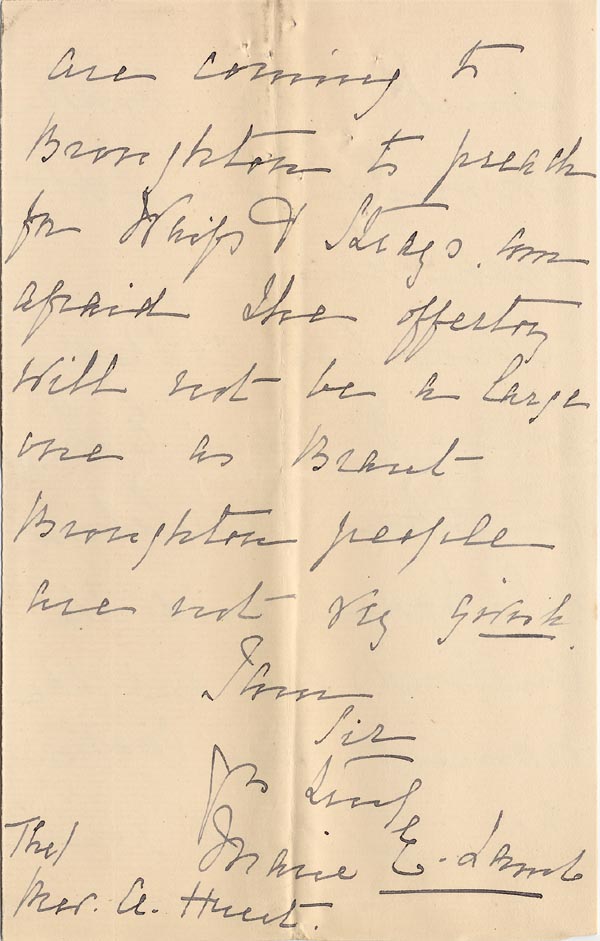 are coming to
Broughton to preach
for Waifs & Strays. am
afraid the offertory
will not be a large
one as Brant
Broughton people
are not very givish.
I am
Sir
Yrs truly
Marie E. Lamb
The/
Rev. A. Huest.